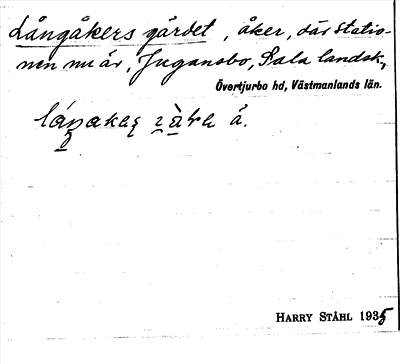 Långåkers gärdet, åker, där Statio-
nen nu är, Juganobo, Sala landsk.,
Övertjurbo hd, Västmanlands län.
å.
HARRY STÅHL 1935